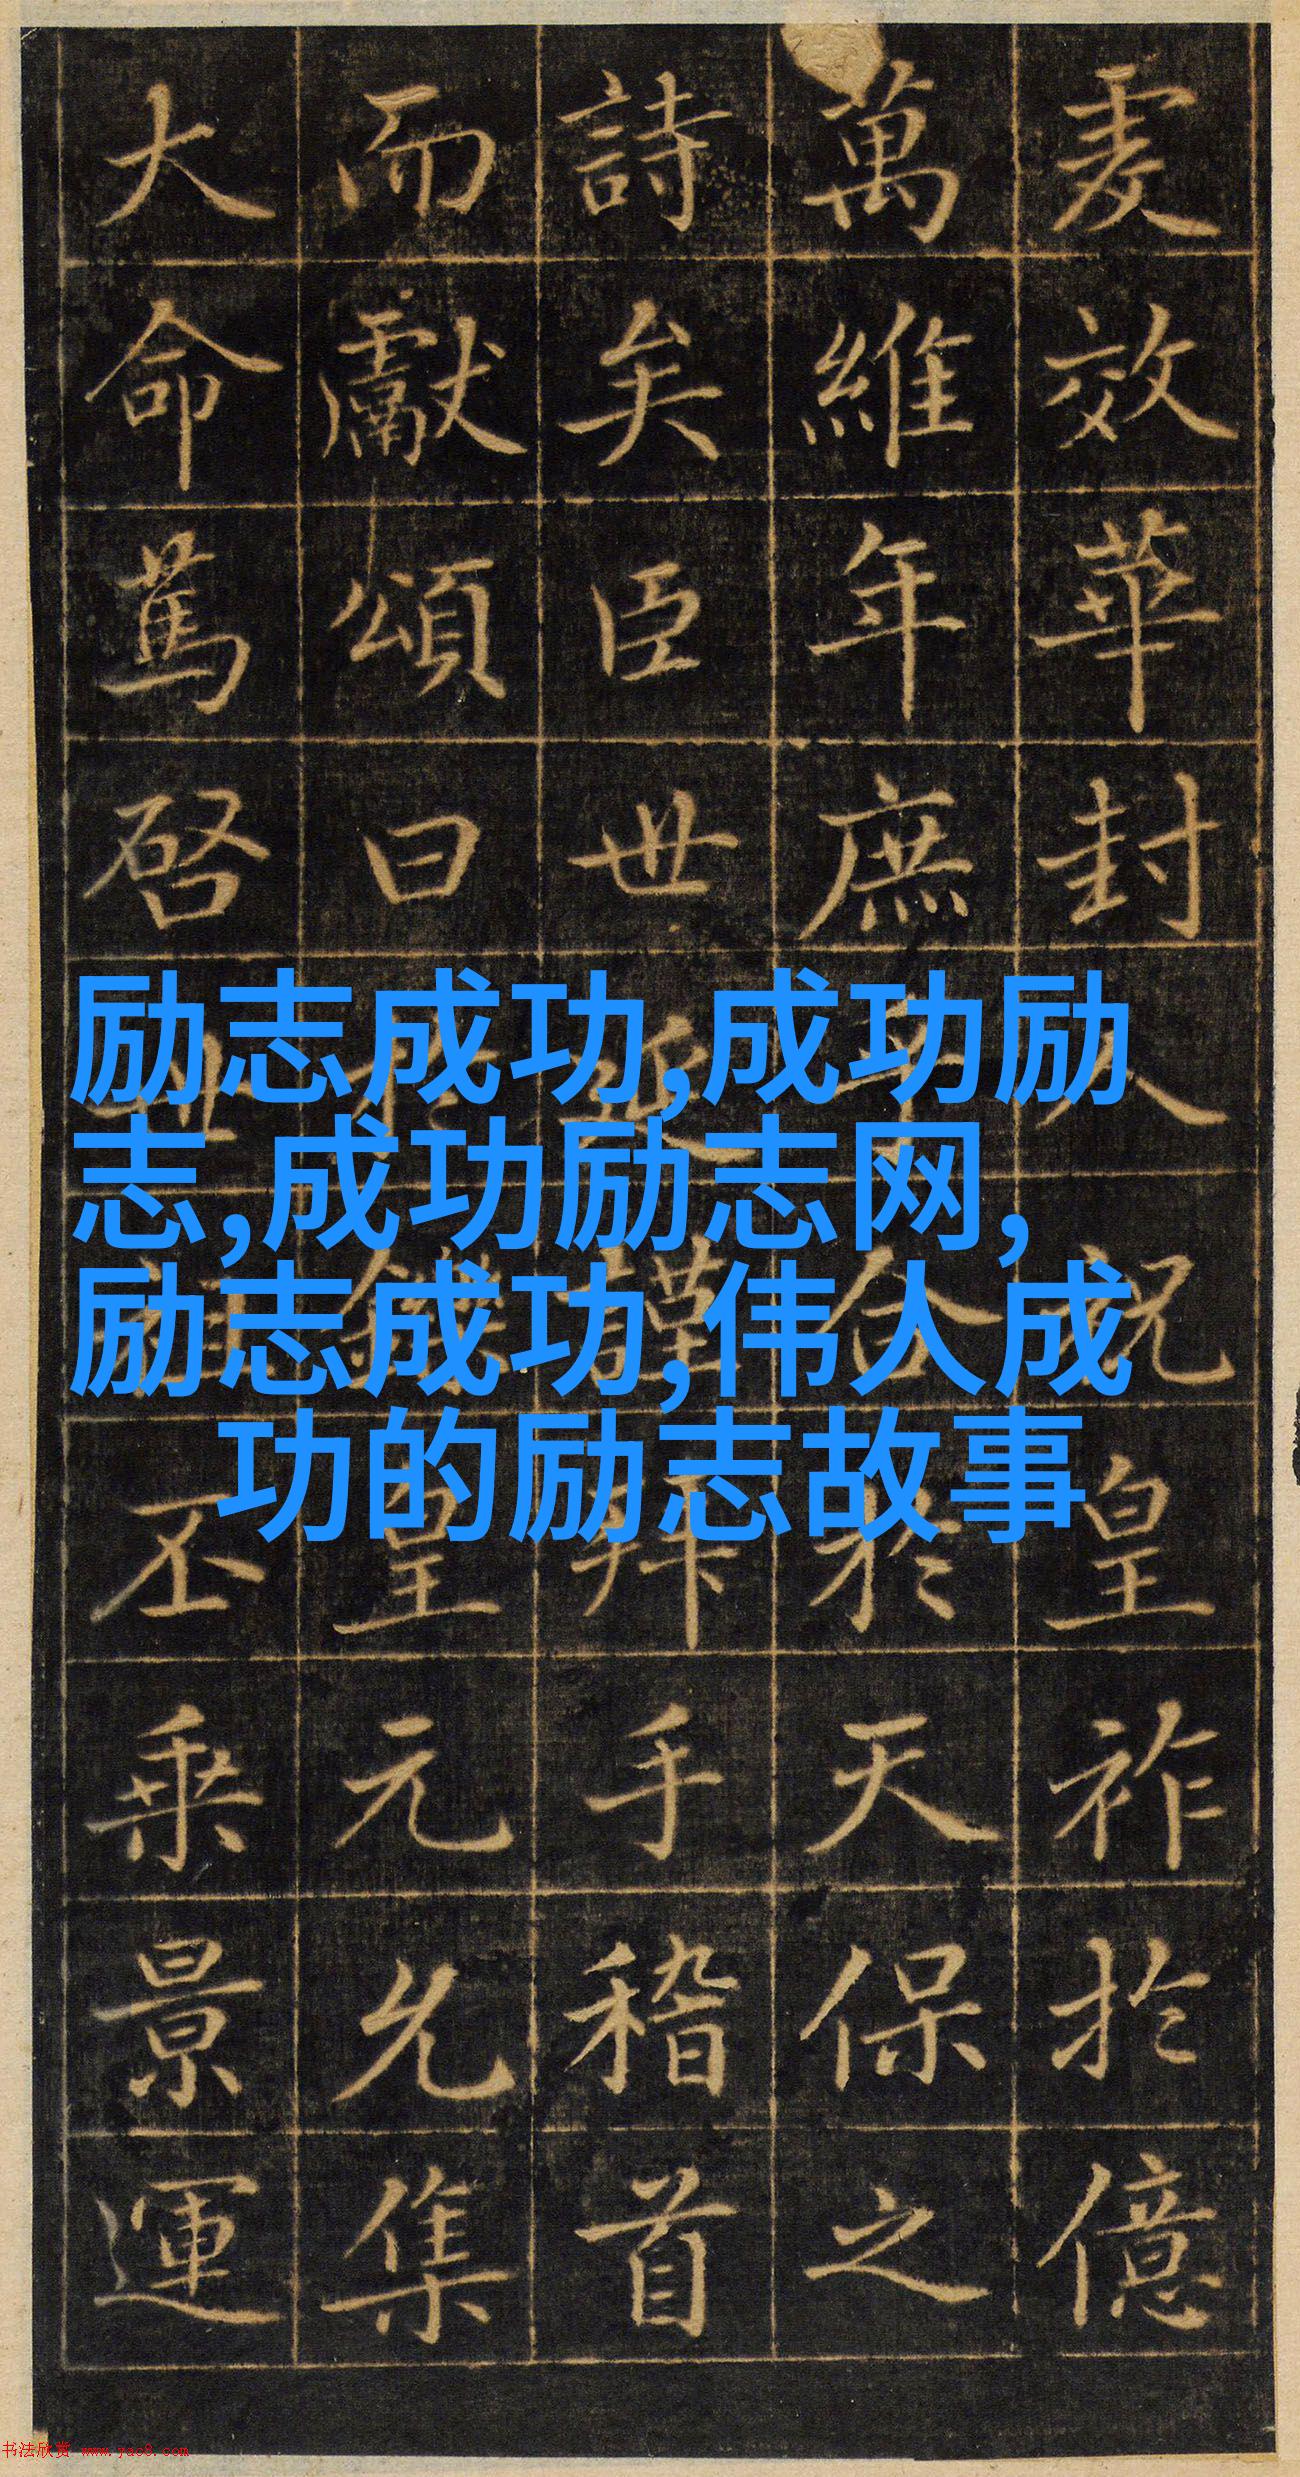 爰效華封人祝皇祚於億
萬維年庶乎合於天保之
詩矣臣世延謹拜手稽首
而獻頌曰於鑠皇元允集
大命篤啓世祖丕乘景運
励志成功,成功励
志,成功励志网,
励志成功,伟人成
功的励志故事
书法欣赏 www.yac8.com